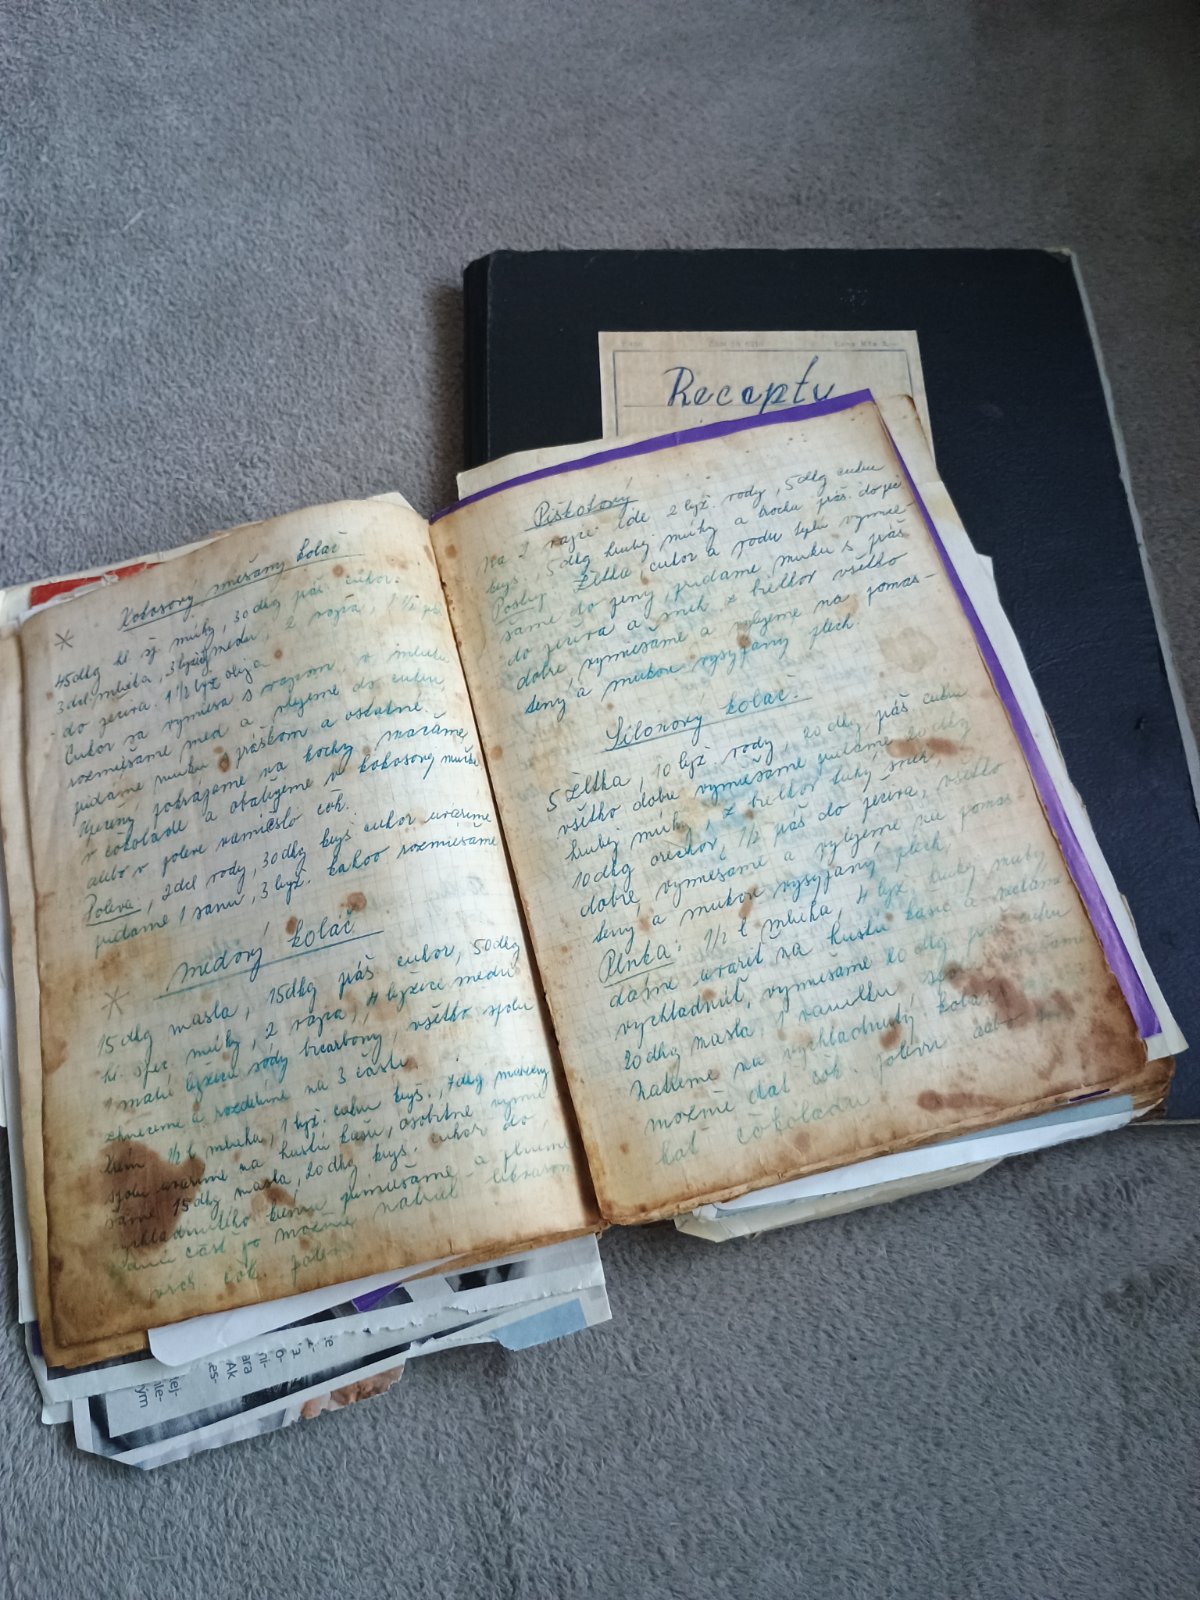 Recepty
Kokosový miešaný koláč
45 dkg hl. šp. múky, 30 dkg práš. cukor.
3 dcl mlieka, 3 lyžice medu, 2 vajcia, 1 1/2 práš
do pečiva. 1 1/2 lyž oleja
Cukor sa vymiesa s vajcom, v mlieku
rozmiešame med a vlejeme do cukru,
pridáme múku s práškom a ostatné.
Upečený pokrájame na kocky, máčame
v čokoláde a obalujeme v kokosovej múčke
alebo v poleve namiesto čok.
Poleva, 2 dcl vody, 30 dkg kryš cukor uvaríme
pridáme 1 sanu, 3 lyž. kakao rozmiešame
Medový koláč
15 dkg masla, 15 dkg práš cukor, 50 dkg
hl. špec. múky, 2 vajcia, 4 lyžice medu
1 malú lyžicu sódy bicarbony, všetko spolu
zhnetieme a rozdelíme na 3 časti.
Krém 1/2 l mlieka, 1 lyž. cukru kryš., 7 dkg
spolu uvaríme na hustú kašu, osobitne
15 dkg masla, 20 dkg kryš. cukor do
vychladnutého krému primiešame a plníme
časť po možme natrieť lekvárom
čok.
Piškotový
Na 1 vajce ide 2 lyž. vody, 5 dkg cukru
kryš., 5 dkg hrubej múky a trocha práš. do peč
Postup: Žĺtka, cukor a vodu spolu vymie-
šame do peny, pridáme múku s práš
do pečiva a sneh z bielkov všetko
dobre vymiešame a vylejeme na pomas-
tený a múkou vysypaný plech.
Silonový koláč.
5 žĺtka, 10 lyž. vody, 20 dkg práš cukru
všetko dobre vymiešame pridáme 20 dkg
hrubej múky, z bielkov tuhý sneh,
10 dkg orechov, 1/2 práš do pečiva, všetko
dobre vymiešame a vylejeme na pomas-
tený a múkou vysypaný plech.
Plnka: 1/2 l mlieka, 4 lyž. hrubej múky
dáme uvariť na hustú kašu a necháme
vychladnúť, vymiešame 20 dkg cukru
20 dkg masla, 1 vanilku
Natrieme na vychladnutý koláč
možme dať čok. polevu alebo
čokoládu